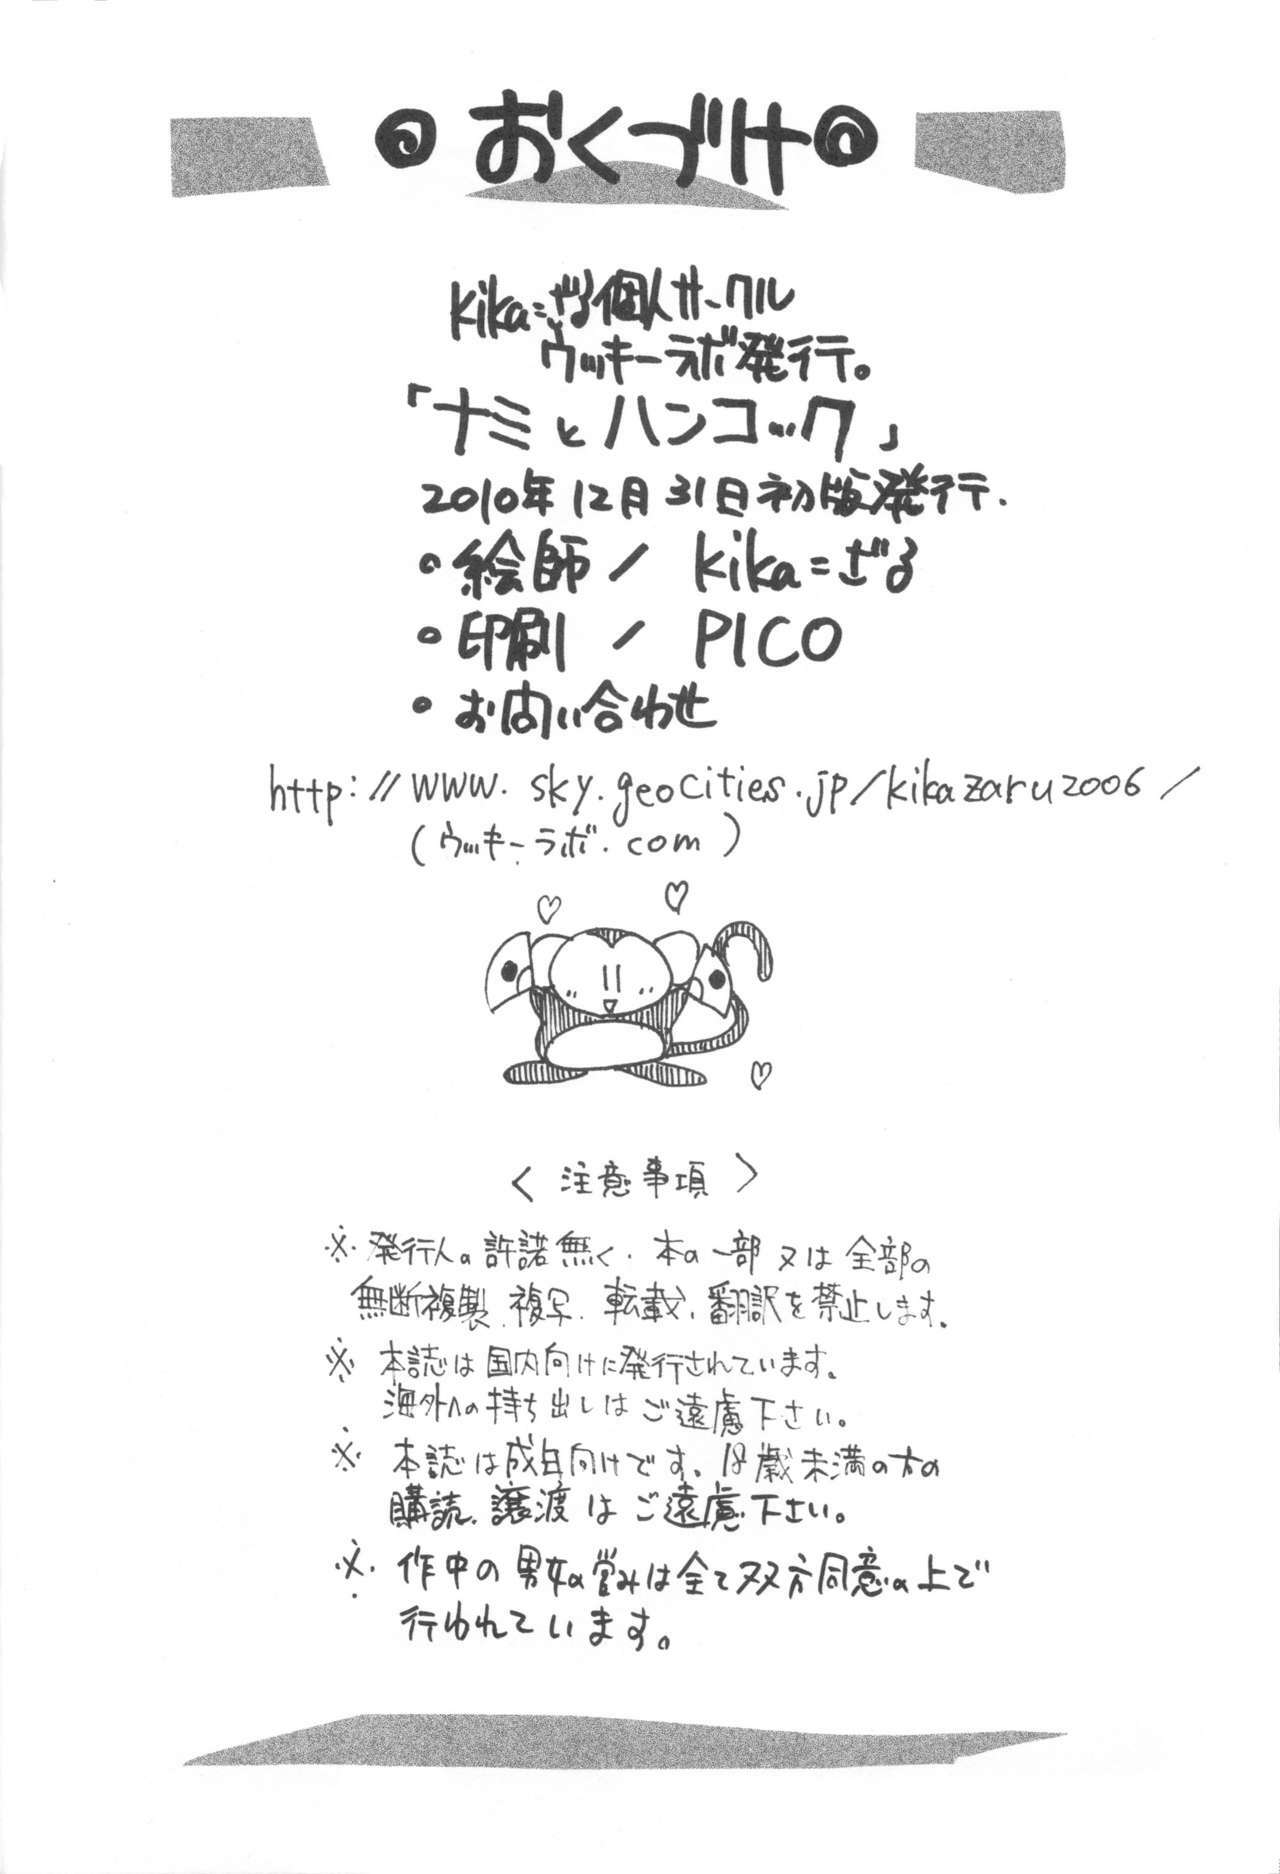 おくづけ
kika=ざる個人サークル
ウッキーラボ発行。
「ナミとハンコック」
2010年12月31日初版発行.
・絵師/kika=ざる
・印刷/PICO
・お問い合わせ
http://www.sky.geocities.jp/kikazaru2006/
(ウッキーラボ.com)
<注意事項>
※.発行人の許諾無く、本の一部又は全部の
無断複製、複写、転載、翻訳を禁止します。
※本誌は国内向けに発行されています。
海外への持ち出しはご遠慮下さい。
※本誌は成年向けです。18歳未満の方の
購読、譲渡はご遠慮下さい。
※.作中の男女の営みは全て双方同意の上で
行われています。